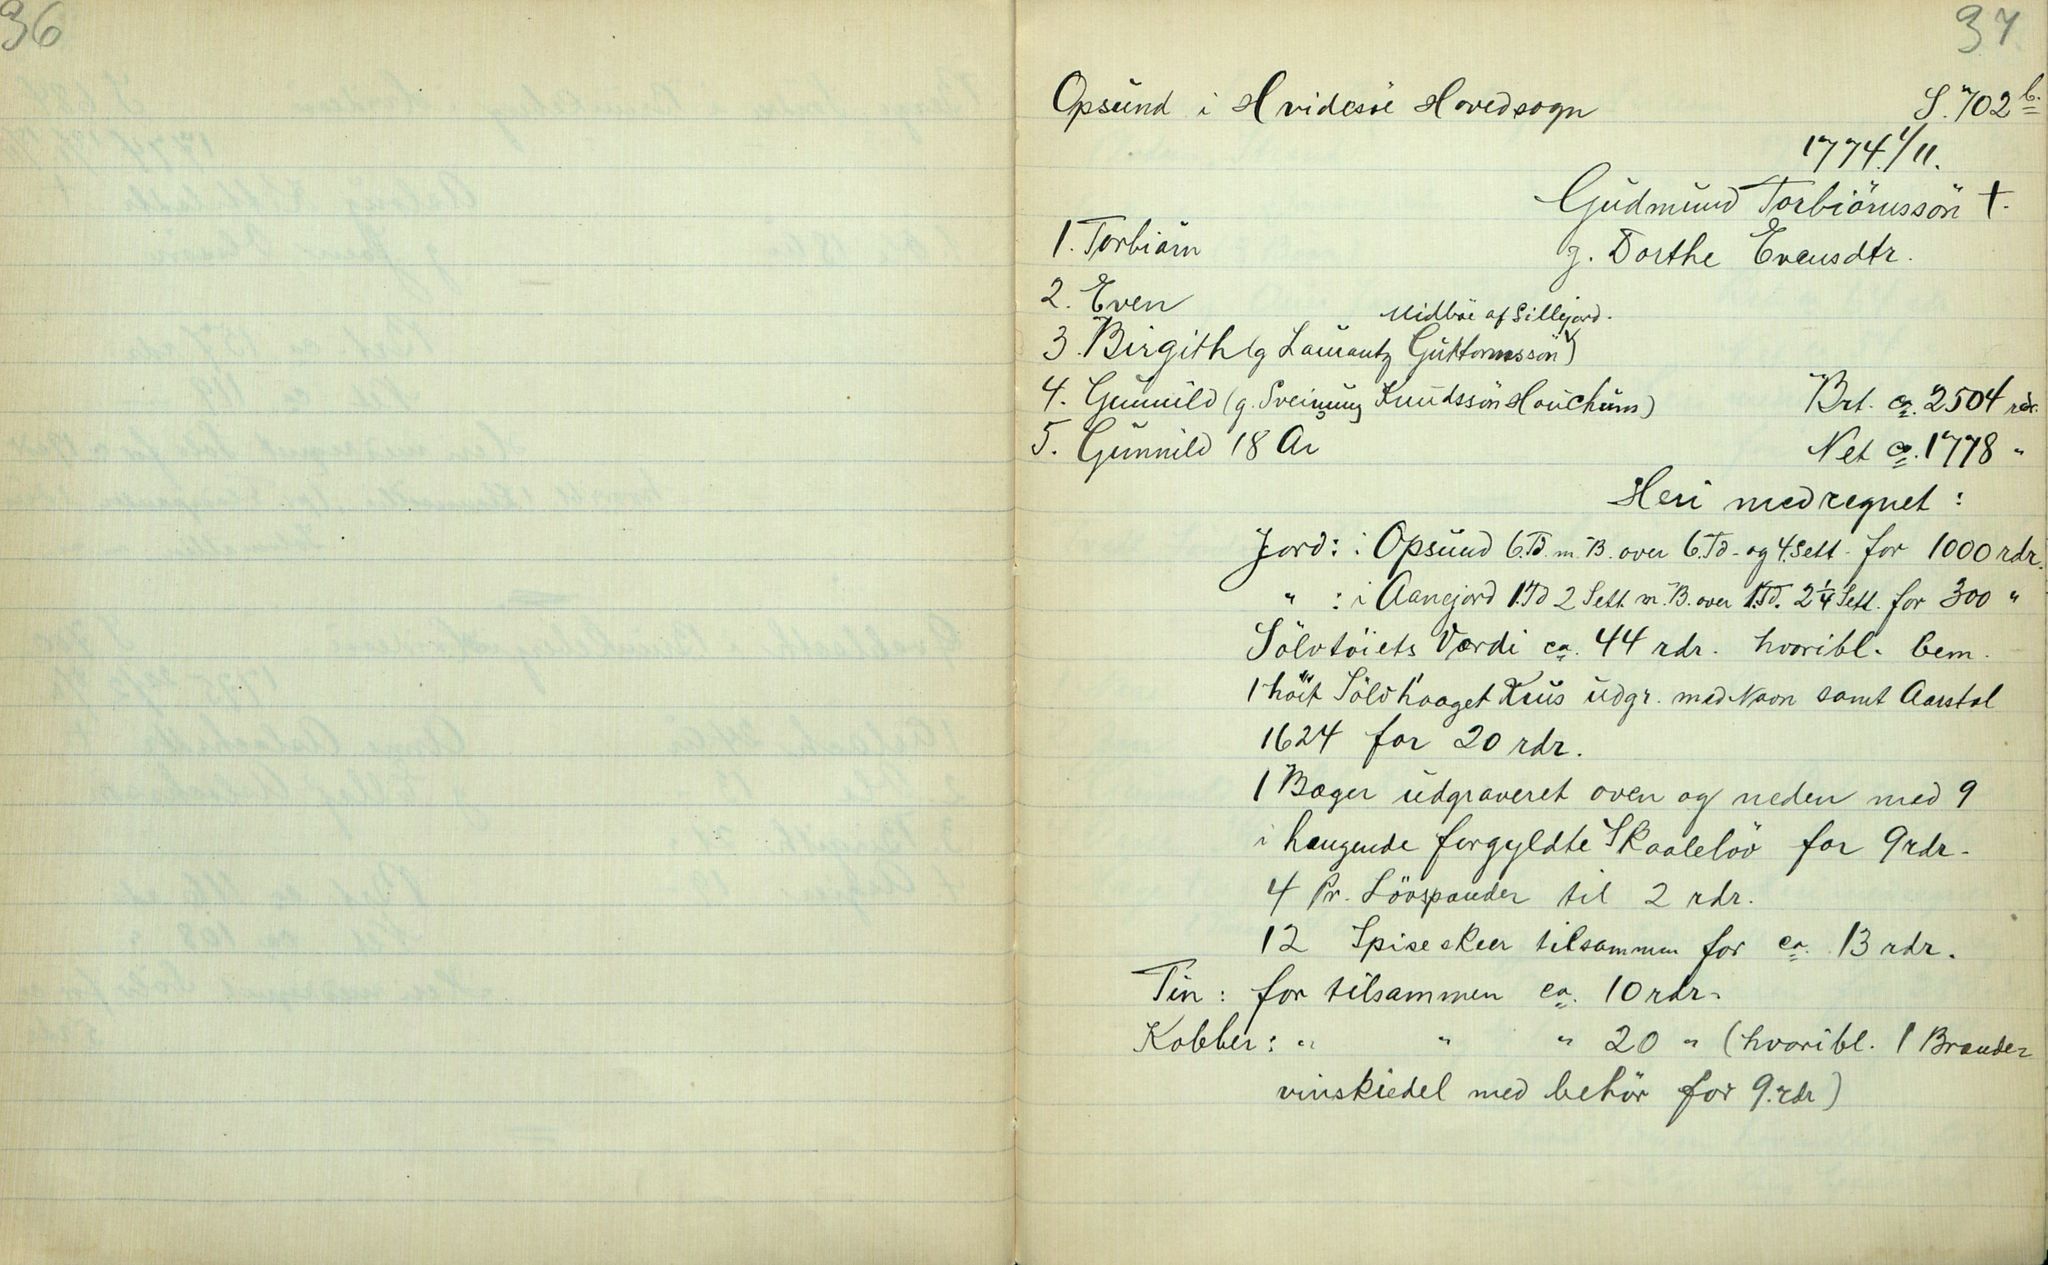 36
37
Opsund i Hvidesöe Hovedsogn S. 702 b.
1774 1/11.
Gudmund Torbiörnssön †.
1. Torbiörn g. Dorthe Evensdtr.
2. Even
Midböe af Sillejord.
3. Birgith (g Laurantz Guttormssön)
4. Gunnild (g. Sveinung Knudssön Houchum) Brt. ca. 2504 rdr.
5. Gunnild 18 Ar Net ca. 1778 "
Heri medregnet :
Jord: i Opsund 6. Td. m. B. over 6. Td. og 4. Sett. for 1000 rdr.
" : i Aanejord 1. Td 2 Sett. m. B. over 1. Td. 2 1/4 Sett. for 300 "
Sölvtöiets Værdi ca. 44 rdr. hvoribl. bem.
1 höit Sölvkaaget Krus udgr. med Navn samt Aarstal
1624 for 20 rdr.
1 Bæger udgraveret oven og neden med 9
i hængende forgyldte Skaalelöv for 9 rdr.
4 Pr. Lövspænder til 2 rdr.
12 Spiseskeer tilsammen for ca. 13 rdr.
Tin : for tilsammen ca. 10 rdr.
Kobber : " " " 20 " (hvoribl. 1 Brænde-
vinskiedel med behör for 9. rdr)